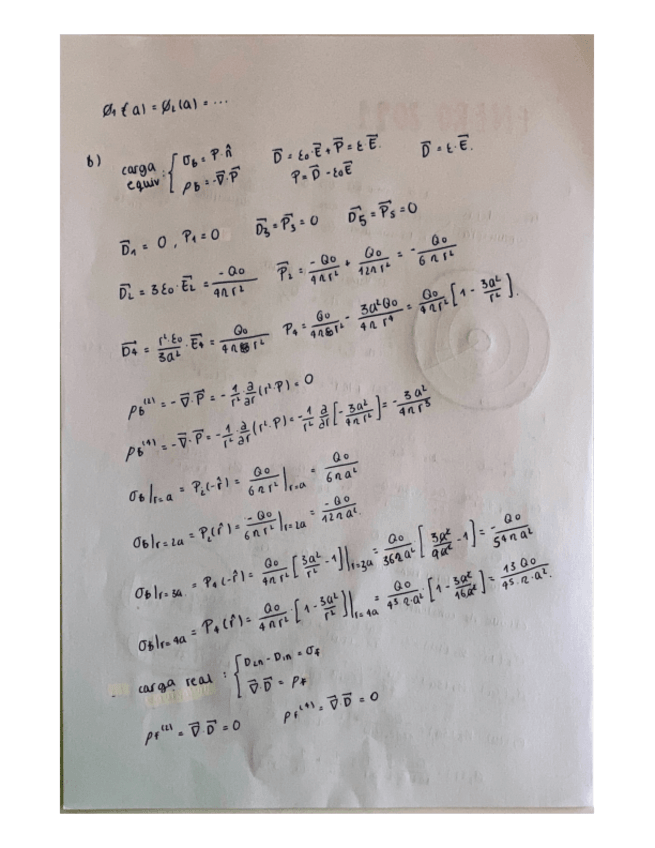 Ø₁(a) = Ø₂(a) = ...
b) carga equiv: { σb = P·n̂ D⃗ = ε₀·E⃗ + P⃗ = ε·E⃗. D⃗ = ε·E⃗.
ρb = -∇⃗·P⃗ P = D⃗ - ε₀E⃗
D⃗₁ = 0, P₁ = 0 D⃗₃ = P⃗₃ = 0 D⃗₅ = P⃗₅ = 0
D⃗₂ = 3ε₀·E⃗₂ = -Q₀/4πr² P⃗₂ = -Q₀/4πr² + Q₀/12πr² = -Q₀/6πr²
D⃗₄ = r²·ε₀/3a² · E⃗₄ = Q₀/4πr² P₄ = Q₀/4πr² - 3a²Q₀/4πr⁴ = Q₀/4πr² [1 - 3a²/r²].
ρb⁽²⁾ = -∇⃗·P⃗ = -1/r² ∂/∂r (r²·P) = 0
ρb⁽⁴⁾ = -∇⃗·P⃗ = -1/r² ∂/∂r (r²·P) = -1/r² ∂/∂r [-3a²/4πr²] = -3a²/4πr⁵
σb|r=a = P₂(-r̂) = Q₀/6πr² |r=a = Q₀/6πa²
σb|r=2a = P₂(r̂) = -Q₀/6πr² |r=2a = -Q₀/12πa².
σb|r=3a = P₄(-r̂) = Q₀/4πr² [3a²/r² - 1]|r=3a = Q₀/36πa² [3a²/9a² - 1] = -Q₀/54πa²
σb|r=4a = P₄(r̂) = Q₀/4πr² · [1 - 3a²/r²]|r=4a = Q₀/45·π·a² · [1 - 3a²/16a²] = 13Q₀/45·π·a².
- carga real: { D₂n - D₁n = σf
∇⃗·D⃗ = ρf
ρf⁽²⁾ = ∇⃗·D⃗ = 0 ρf⁽⁴⁾ = ∇⃗·D⃗ = 0